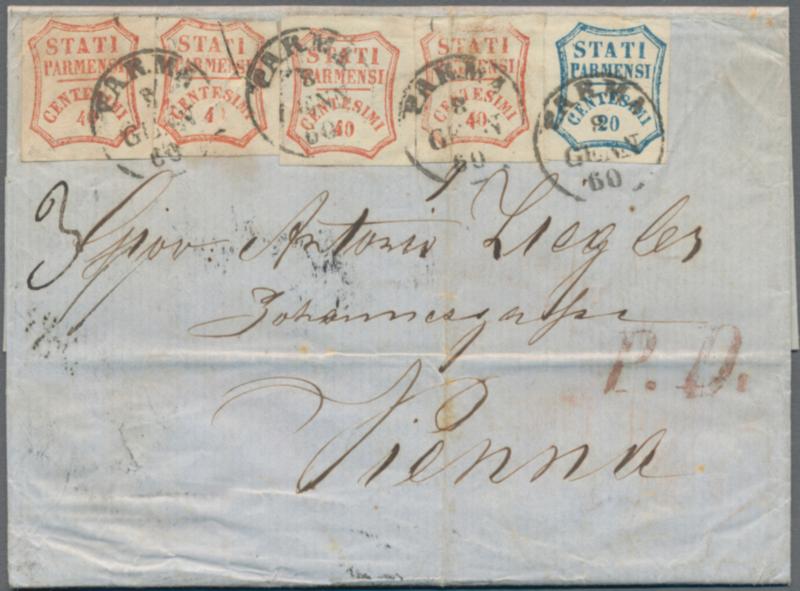 STATI PARMENSI CENTESIMI 40
STATI PARMENSI CENTESIMI 4
STATI PARMENSI CENTESIMI 40
STATI PARMENSI CENTESIMI 40
STATI PARMENSI CENTESIMI 20
PARMA 8 GENN 60
PARMA 8 GENN 60
PARMA 8 GENN 60
PARMA 8 GENN 60
3
Giov. Antonio Ziegler
Johannesgasse
P.D.
Vienna